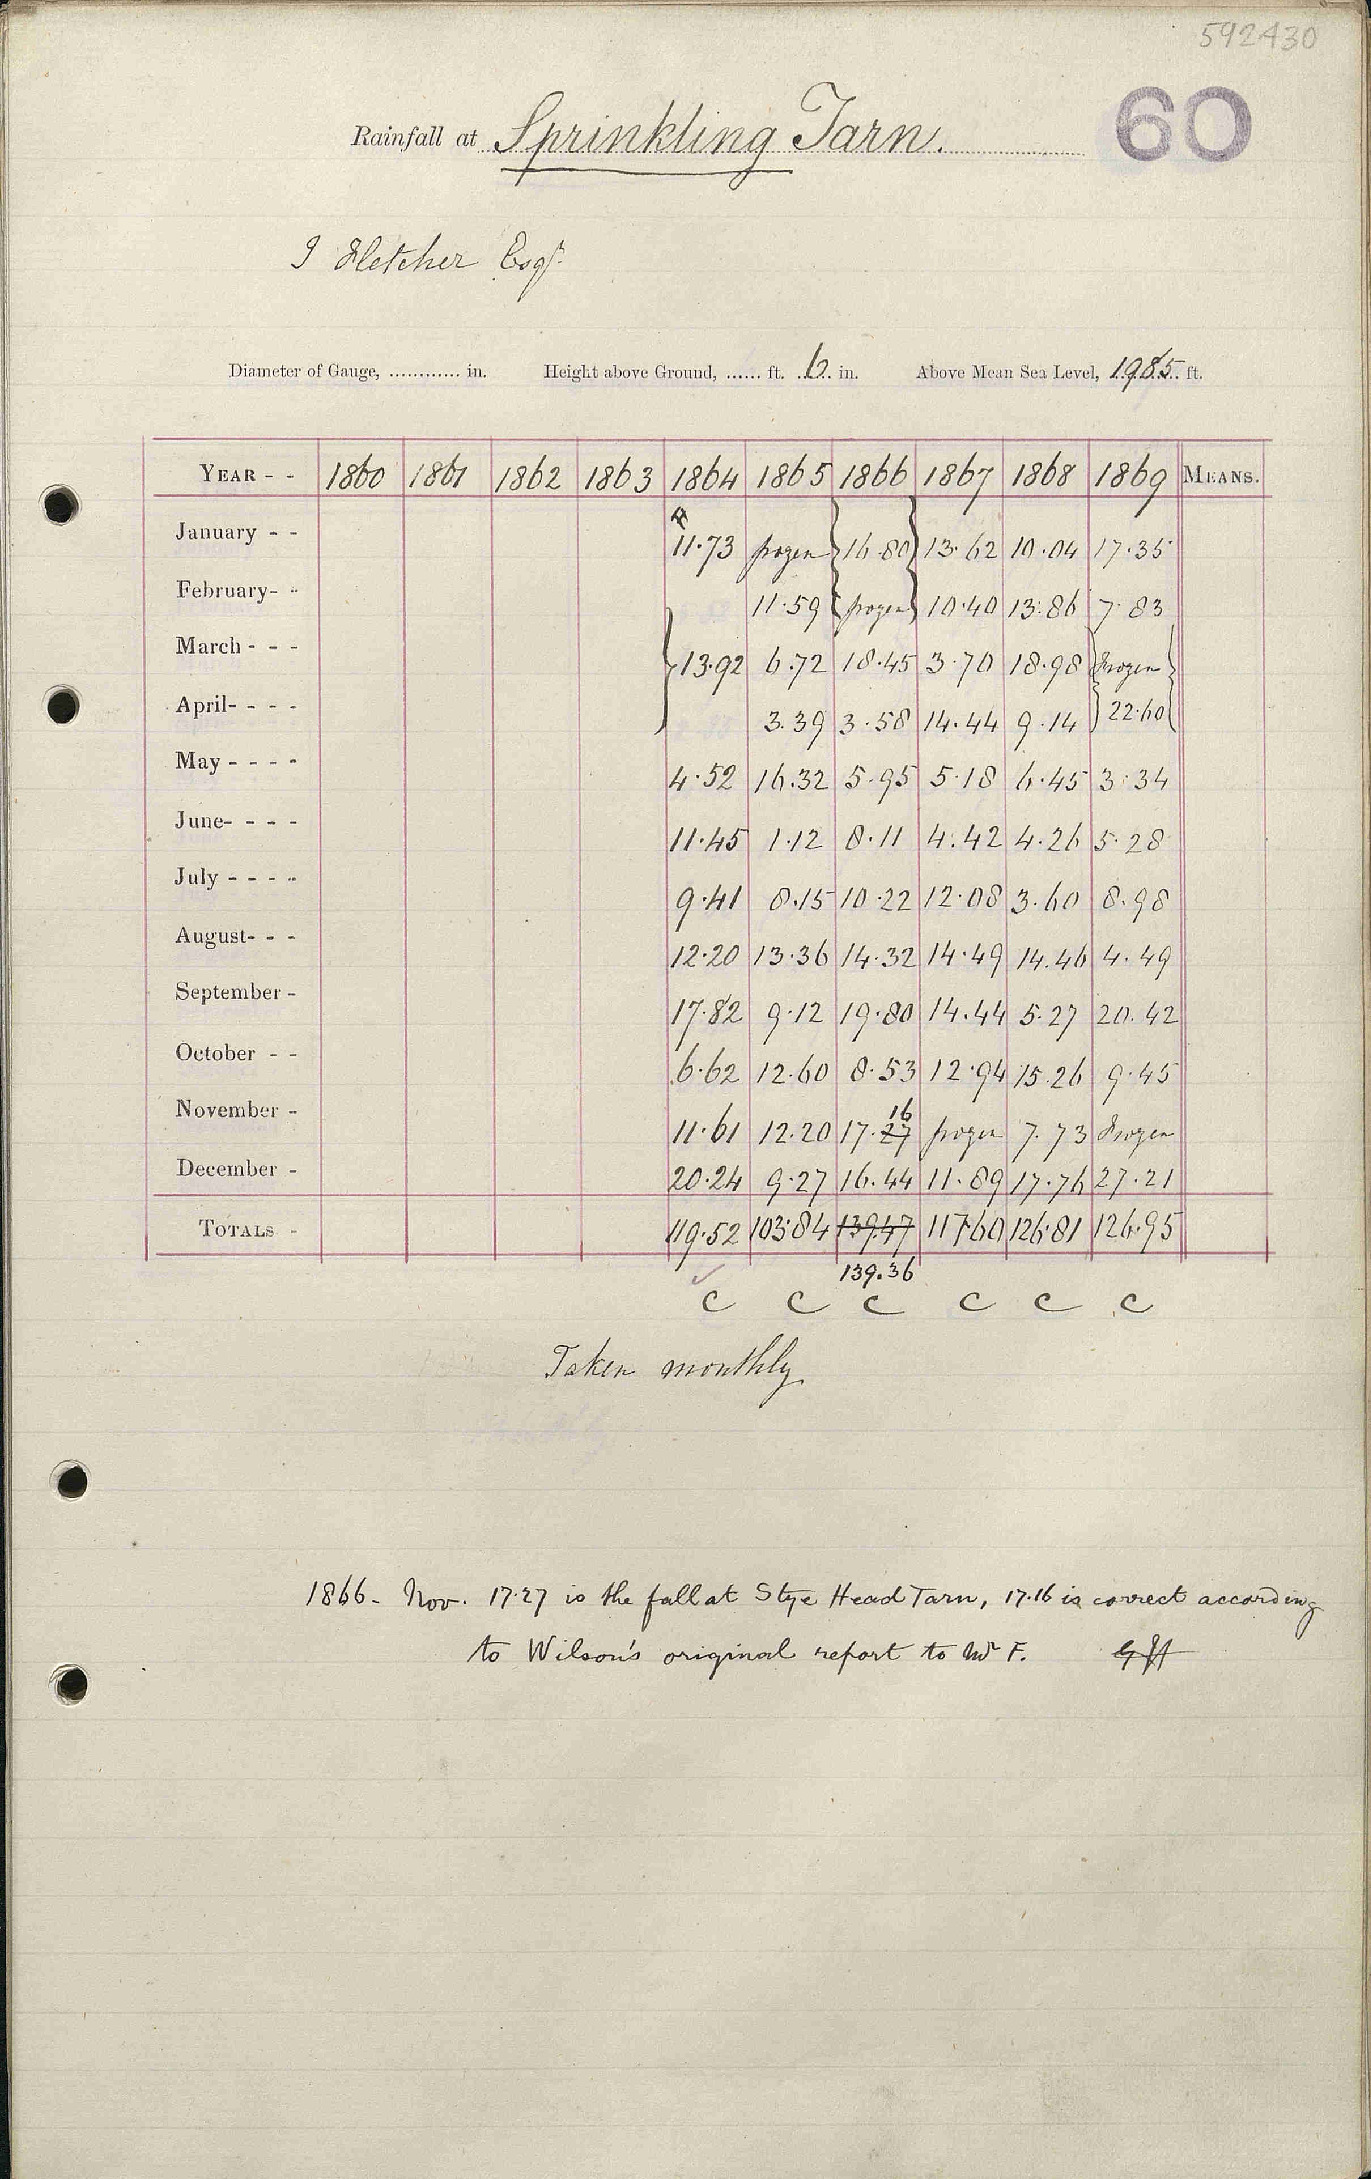 592430
Rainfall at Sprinkling Tarn. 60
I Fletcher Esqr.
Diameter of Gauge, ............ in. Height above Ground, ...... ft. 6 in. Above Mean Sea Level, 1985 ft.
YEAR - - 1860 1861 1862 1863 1864 1865 1866 1867 1868 1869 MEANS.
January - - 11.73 frozen 16.80 13.62 10.04 17.35
February - - 11.59 frozen 10.40 13.86 7.83
March - - - 13.92 6.72 18.45 3.70 18.98 Frozen
April - - - - 3.39 3.58 14.44 9.14 22.60
May - - - - 4.52 16.32 5.95 5.18 6.45 3.34
June - - - - 11.45 1.12 8.11 4.42 4.26 5.28
July - - - - 9.41 8.15 10.22 12.08 3.60 8.98
August - - - 12.20 13.36 14.32 14.49 14.46 4.49
September - 17.82 9.12 19.80 14.44 5.27 20.42
October - - 6.62 12.60 8.53 12.94 15.26 9.45
16
November - 11.61 12.20 17.27 frozen 7.73 Frozen
December - 20.24 9.27 16.44 11.89 17.76 27.21
TOTALS - 119.52 103.84 139.47 117.60 126.81 126.95
139.36
C C C C C C
Taken monthly
1866 - Nov. 17.27 is the fall at Stye Head Tarn, 17.16 is correct according
to Wilson's original report to Mr F.